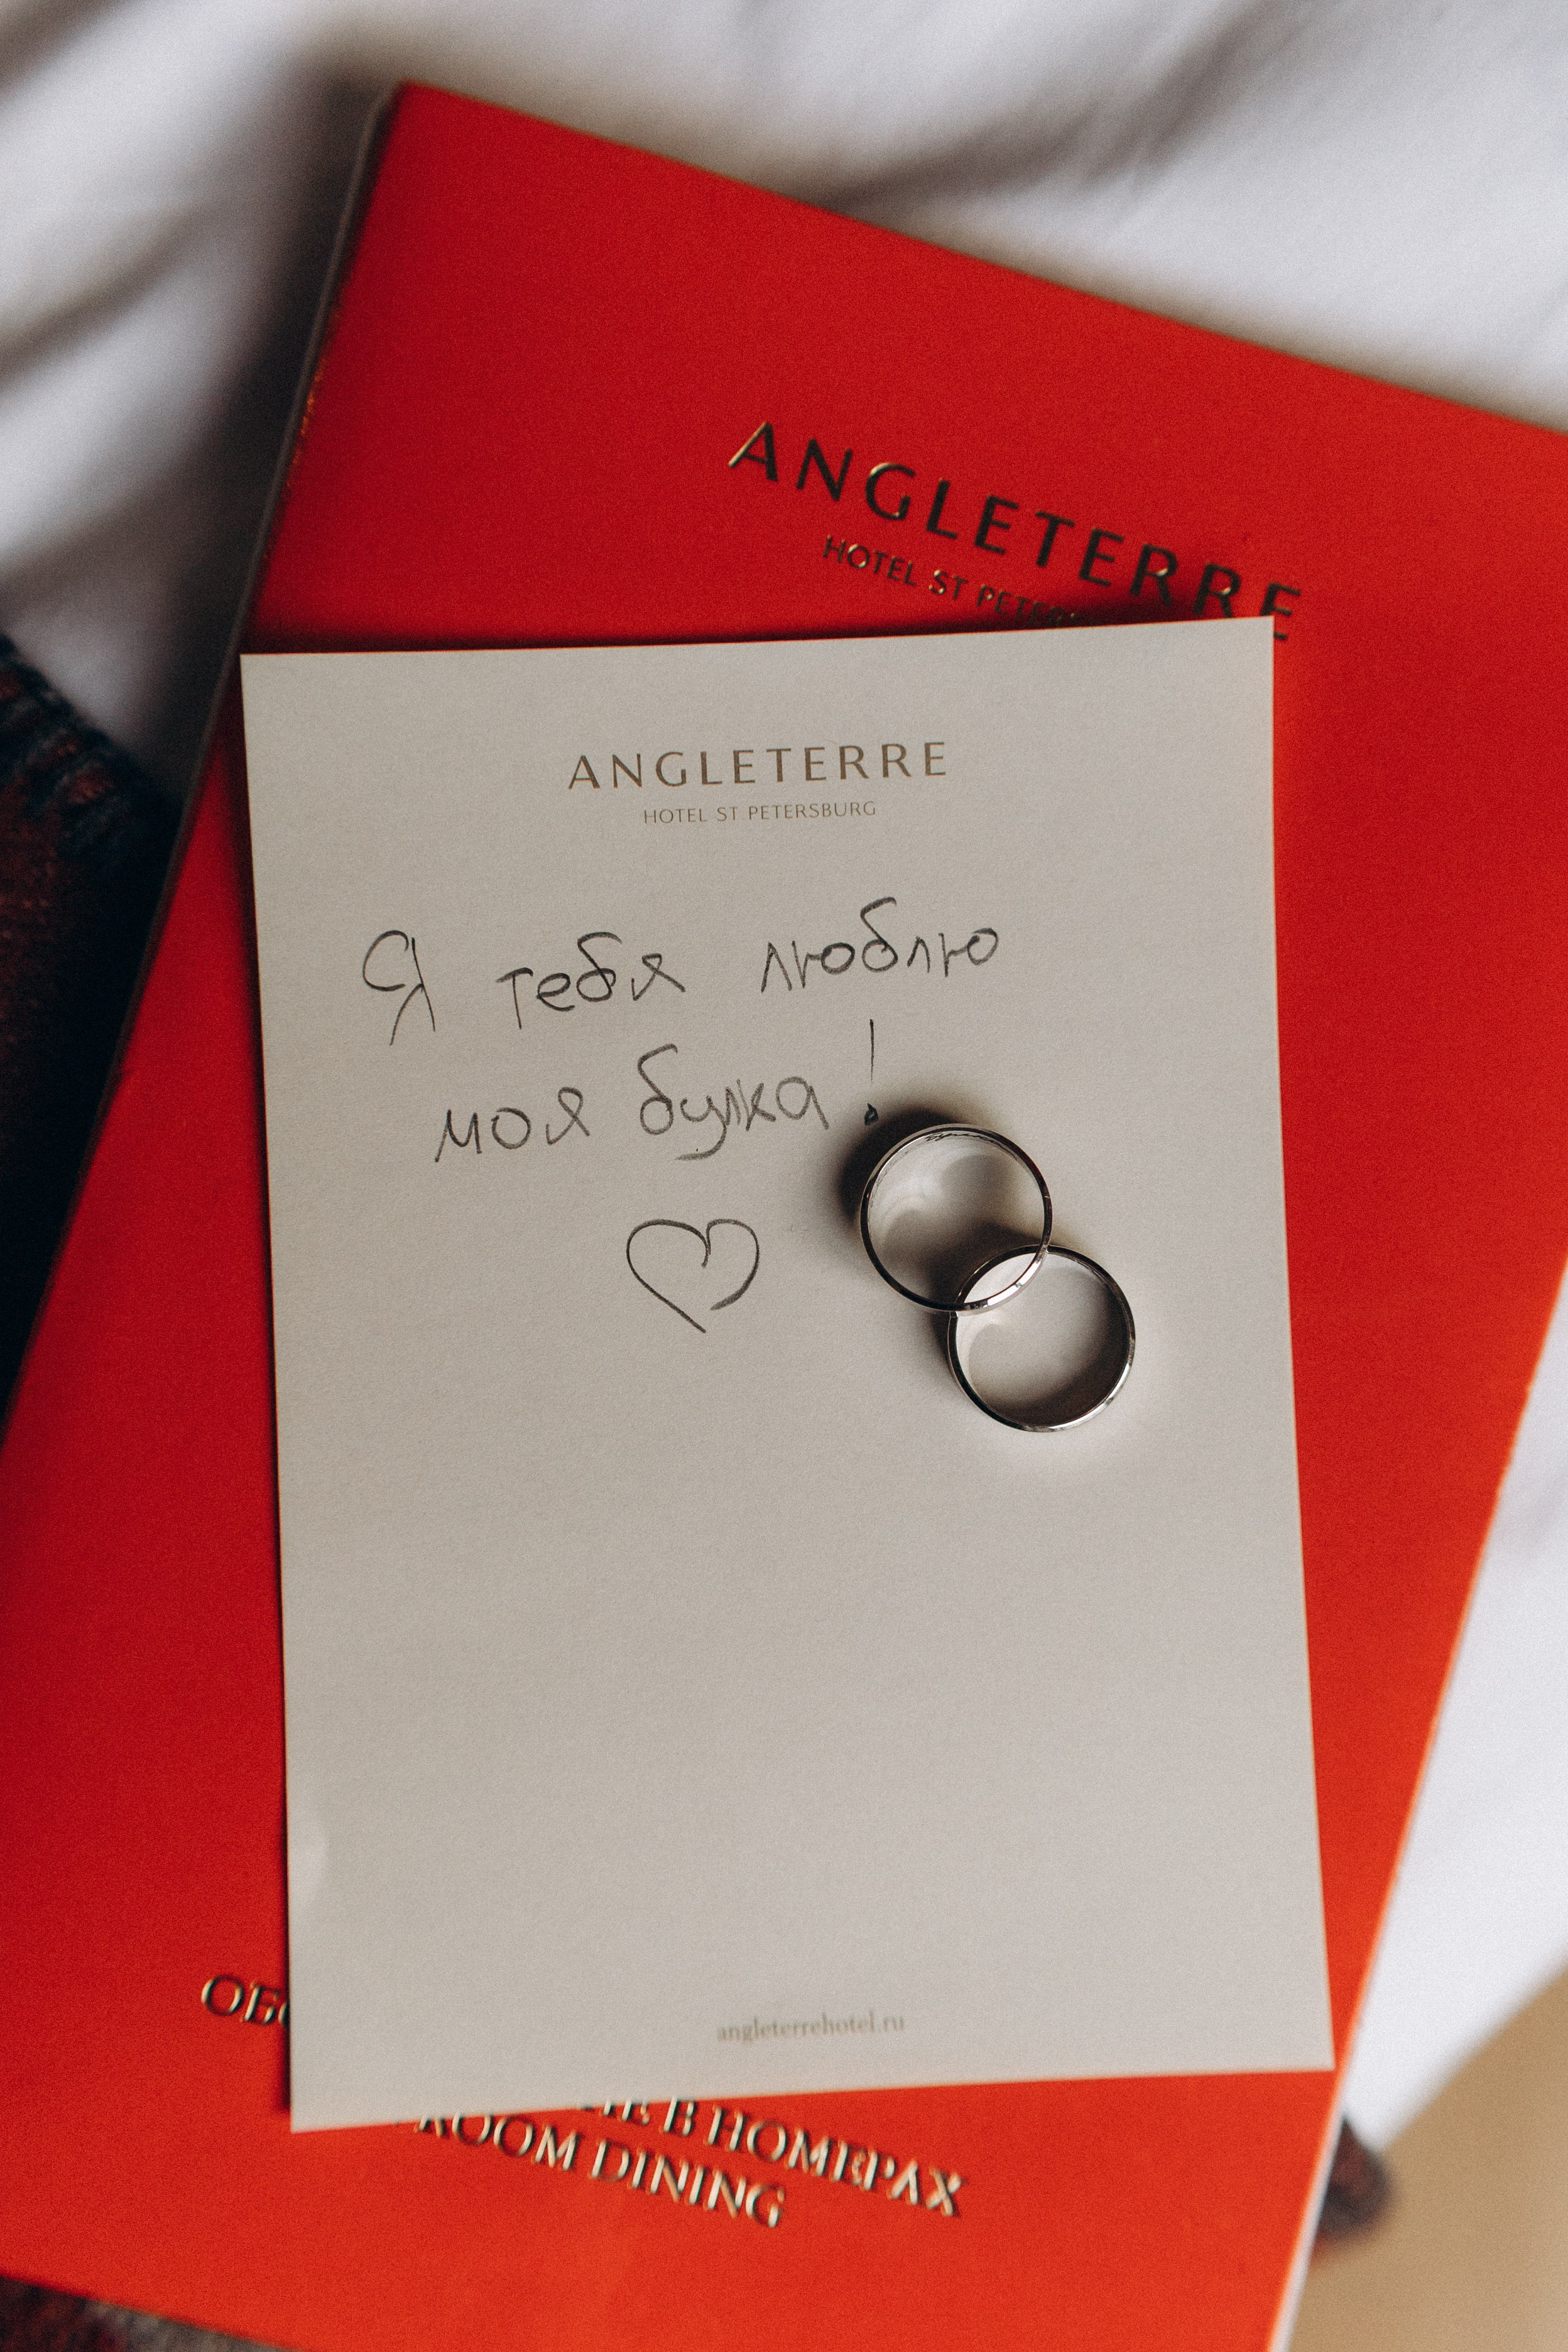 ANGLETERRE
HOTEL ST
ANGLETERRE
HOTEL ST PETERSBURG
Я тебя люблю
моя булка!
angleterrehotel.ru
В НОМЕРАХ
ROOM DINING